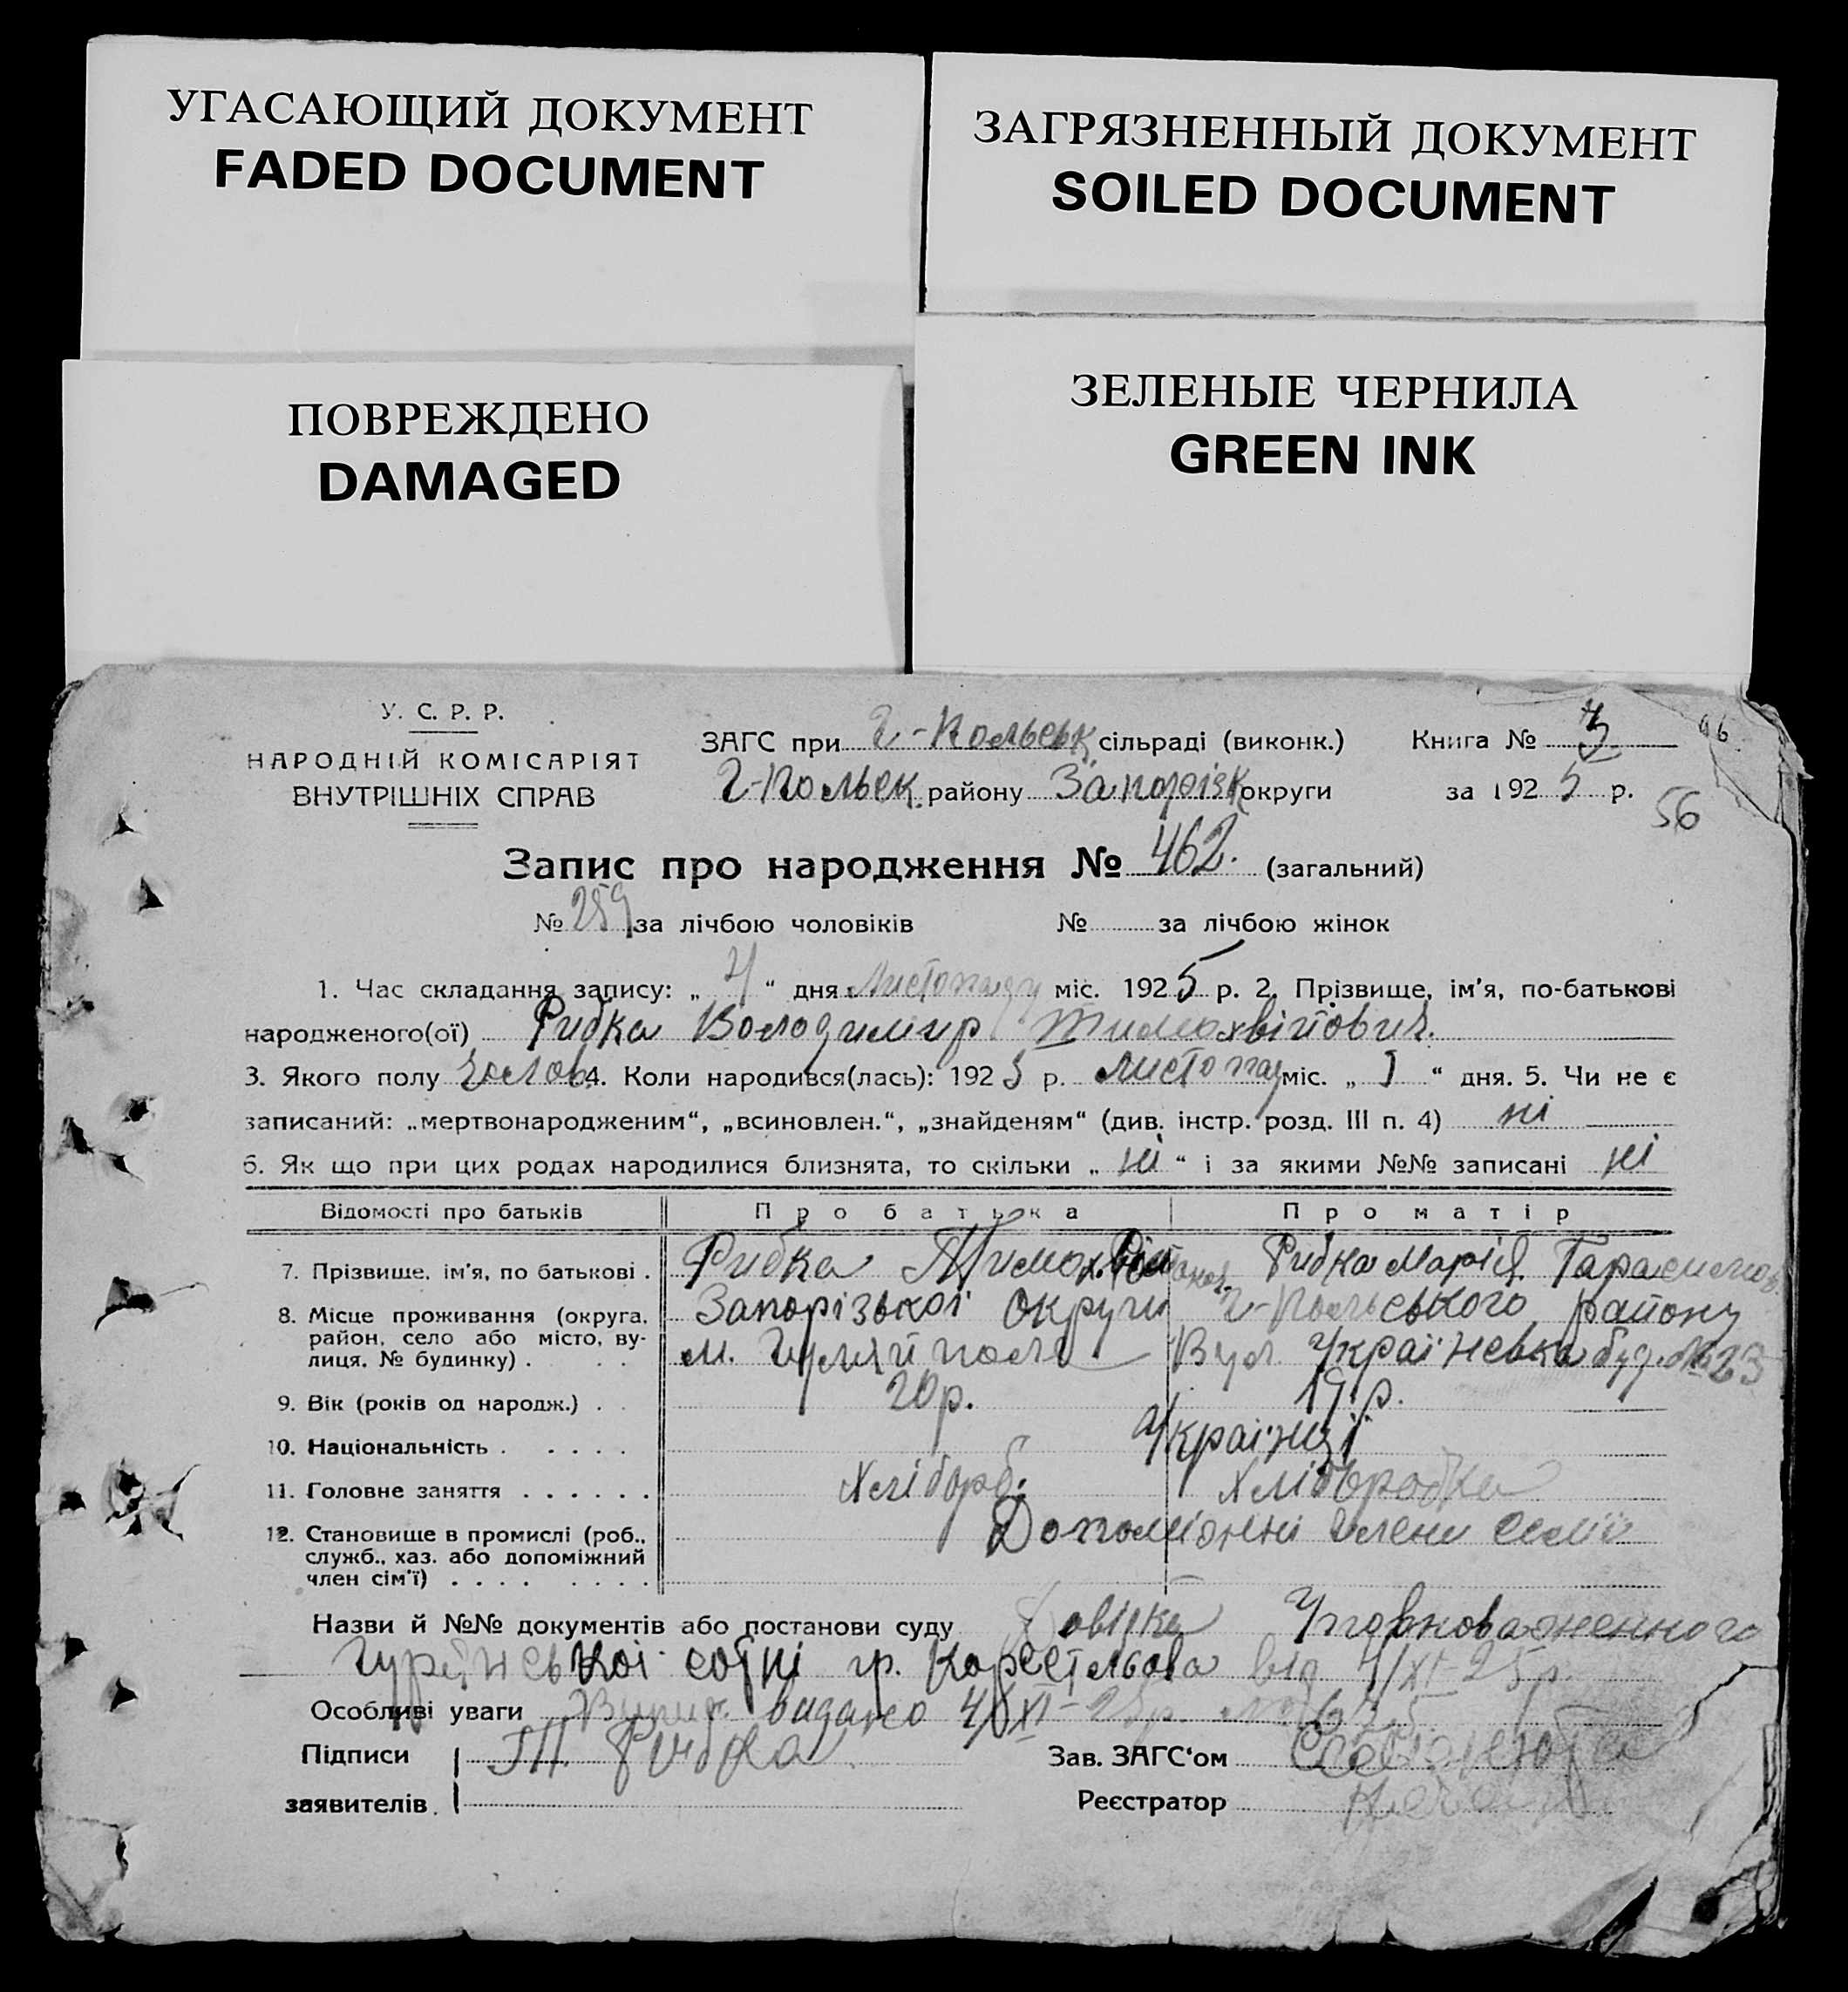 УГАСАЮЩИЙ ДОКУМЕНТ
FADED DOCUMENT
ЗАГРЯЗНЕННЫЙ ДОКУМЕНТ
SOILED DOCUMENT
ПОВРЕЖДЕНО
DAMAGED
ЗЕЛЕНЫЕ ЧЕРНИЛА
GREEN INK
У. С. Р. Р.
НАРОДНІЙ КОМІСАРІЯТ
ВНУТРІШНІХ СПРАВ
ЗАГС при Г-Польськ сільраді (виконк.) Книга № 3
Г-Польськ. району Запоріжк округи за 1925 р.
56
Запис про народження № 462. (загальний)
№ 259 за лічбою чоловіків № за лічбою жінок
1. Час складання запису: „ 4 “ дня Листопаду міс. 1925 р. 2. Прізвище, ім'я, по-батькові
народженого(ої) Рибка Володимир Тимохвійович.
3. Якого полу чолов. 4. Коли народився(лась): 1925 р. листопад міс. „ 1 “ дня. 5. Чи не є
записаний: „мертвонародженим“, „всиновлен.“, „знайденям“ (див. інстр. розд. III п. 4) ні
6. Як що при цих родах народилися близнята, то скільки „ ні “ і за якими №№ записані ні
Відомості про батьків Про батька Про матір
7. Прізвище, ім'я, по батькові . Рибка Тимохвій Рибка Марія Гарасимов.
8. Місце проживання (округа, район, село або місто, вулиця, № будинку) . Запорізької округи Г-Польського району
м. Гуляй поле Вул. Українська буд. №23
9. Вік (років од народж.) . . 20 р. 19 р.
10. Національність . . . . . Українці
11. Головне заняття . . . . . . Хлібороб. Хліборобка
12. Становище в промислі (роб., служб., хаз. або допоміжний член сім'ї) . . . . Допоміжні члени семії
Назви й №№ документів або постанови суду Довідка Уповноваженного
сотні гр. від 4/XI-25 р.
Особливі уваги видано 4/XI-25р. №
Підписи Т. Рибка Зав. ЗАГС'ом
заявителів. Реєстратор